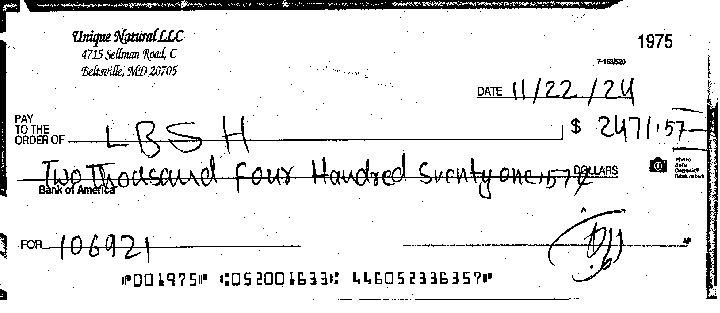 Unique Natural LLC
4715 Sellman Road, C
Beltsville, MD 20705
1975
DATE 11/22/24
PAY
TO THE
ORDER OF LBSH $ 2471.57
Two Thousand Four Hundred Sventy one, 57 DOLLARS
Bank of America
FOR 106921
⑈001975⑈ ⑆052001633⑆ 446052336357⑈